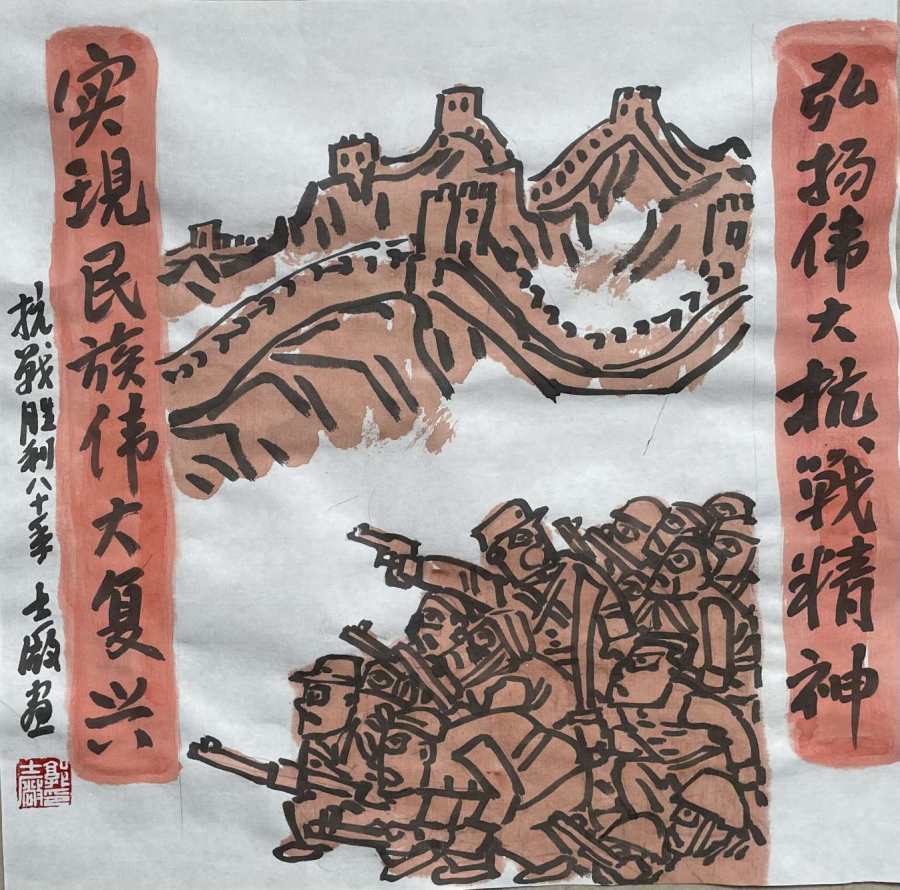 弘扬伟大抗戰精神
实現民族伟大复兴
抗戰胜利八十年 士廠画